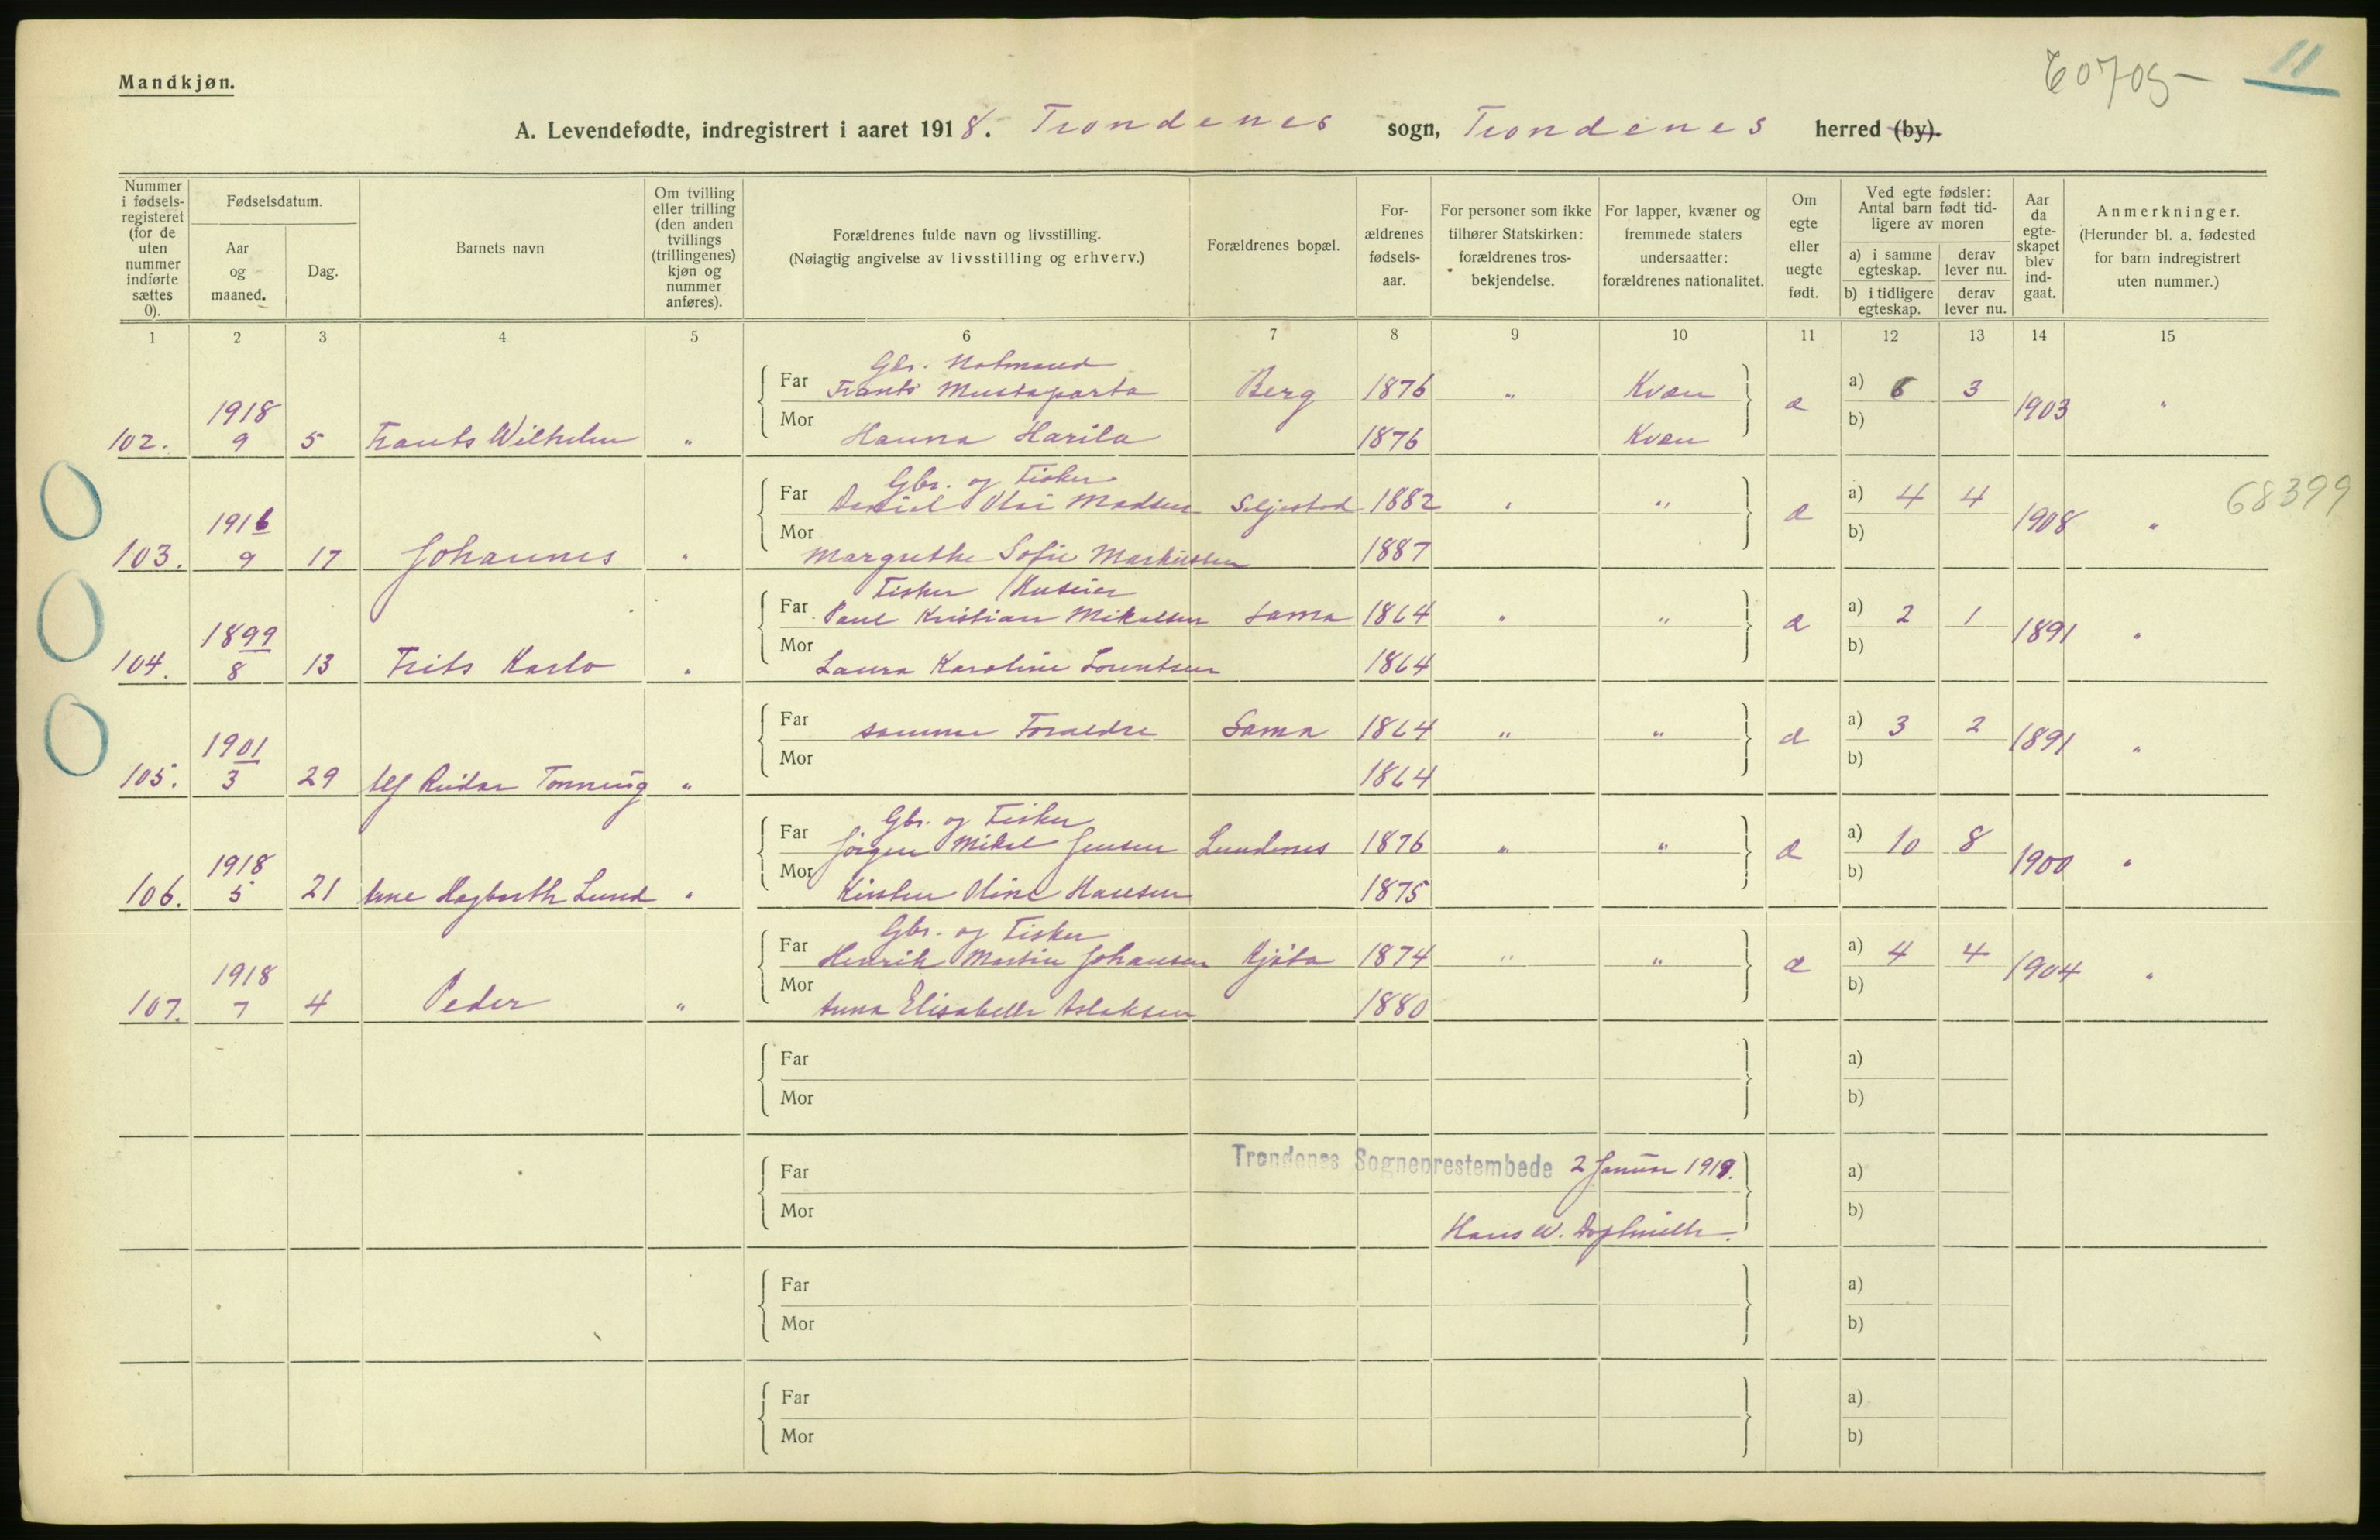 Mandkjøn.
60705-
11
A. Levendefødte, indregistrert i aaret 1918. Trondenes sogn, Trondenes herred (by).
Nummer i fødselsregisteret (for de uten nummer indførte sættes 0).
Fødselsdatum.
Aar og maaned.
Dag.
Barnets navn
Om tvilling eller trilling (den anden tvillings (trillingenes) kjøn og nummer anføres).
Forældrenes fulde navn og livsstilling. (Nøiagtig angivelse av livsstilling og erhverv.)
Forældrenes bopæl.
For-ældrenes fødsels-aar.
For personer som ikke tilhører Statskirken: forældrenes tros-bekjendelse.
For lapper, kvæner og fremmede staters undersaatter: forældrenes nationalitet.
Om egte eller uegte født.
Ved egte fødsler: Antal barn født tid-ligere av moren
a) i samme egteskap. derav lever nu.
b) i tidligere egteskap. derav lever nu.
Aar da egte-skapet blev ind-gaat.
Anmerkninger. (Herunder bl. a. fødested for barn indregistrert uten nummer.)
1 2 3 4 5 6 7 8 9 10 11 12 13 14 15
Gbr. Notmand
Far Frants Mustaparta Berg 1876 " Kvæn a) 6 3
102. 1918 9 5 Frants Wilhelm " Mor Hanna Harila 1876 Kvæn b) 1903 "
Gbr. og Fisker
Far Daniel Olai Madsen Seljestad 1882 " " a) 4 4 68399
103. 1916 9 17 Johannes " Mor Margrethe Sofie Markussen 1887 b) 1908 "
Fisker Huseier
Far Paul Kristian Mikalsen Sama 1864 " " a) 2 1
104. 1899 8 13 Frits Karlo " Mor Laura Karoline Lorentsen 1864 b) 1891 "
Far samme Foraeldre Sama 1864 " " a) 3 2
105. 1901 3 29 Alf Reidar Tonning " Mor 1864 b) 1891 "
Gbr. og Fisker
Far Jørgen Mikal Jensen Lundenes 1876 " " a) 10 8
106. 1918 5 21 Arne Hagbarth Lund " Mor Kirsten Oline Hansen 1875 b) 1900 "
Gbr. og Fisker
Far Henrik Martin Johansen Kjøta 1874 " " a) 4 4
107. 1918 7 4 Peder " Mor Anna Elisabeth Aslaksen 1880 b) 1904 "
Far a)
Mor b)
Far Trondenes Sogneprestembede 2 Januar 1919. a)
Mor Hans W. b)
Far a)
Mor b)
Far a)
Mor b)